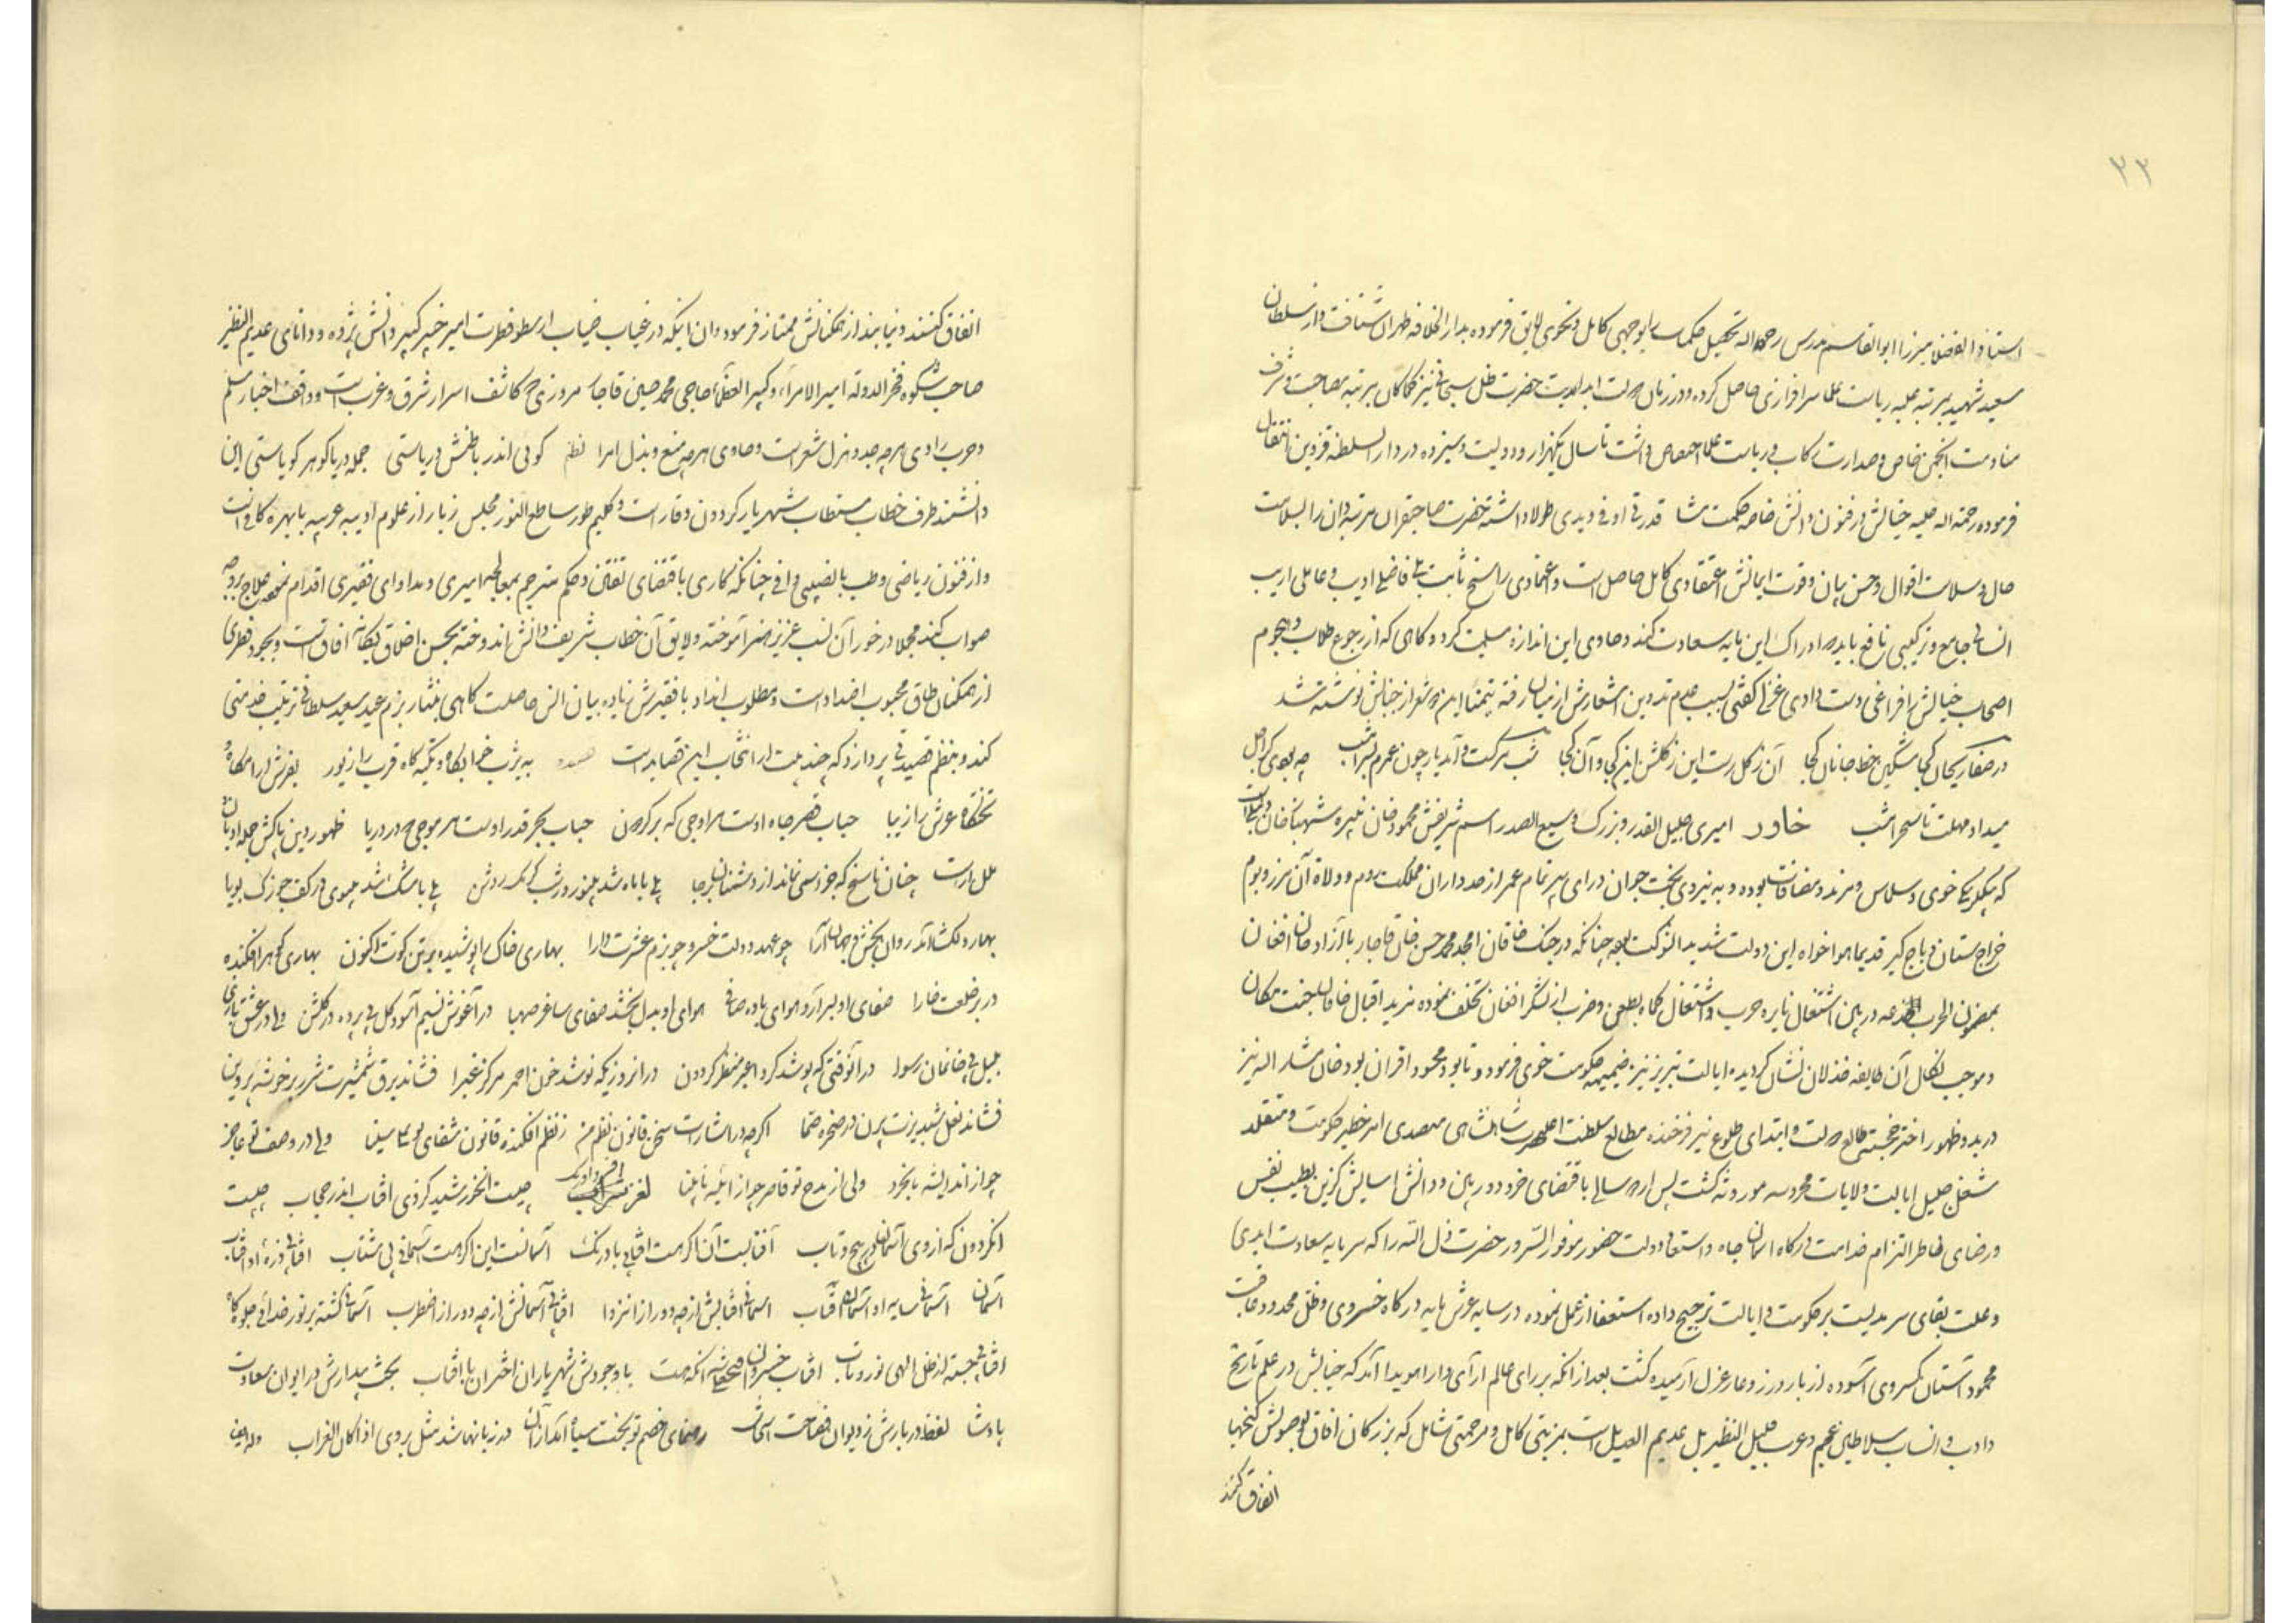 ۲۲
استاذ الفضلا میرزا ابوالقاسم مدرس رحمه اله تحصیل حکمت را بوجهی کامل و نحوی لایق فرموده بدار الخلافه طهران شتافت و از سلطان
سعید شهید بمرتبه علیه ریاست علما سرافرازی حاصل کرده و در زمان دولت ابد مدت حضرت ظل سبحانی نیز کماکان بمرتبه مصاحبت و شرف
منادمت انجمن خاص و صدارت رکاب و ریاست علما اختصاص داشت تا سال یکهزار و دویست و سیزده در دار السلطنه قزوین انتقال
فرموده رحمة اله علیه جنابش در فنون دانش خاصه حکمت مشا قدرتی اوفی و یدی طولا داشته حضرت صاحبقران مرتبه دان را بسلامت
حال و سلاست اقوال و حسن بیان و قوت ایمانش اعتقادی کامل حاصل است و اعتمادی راسخ ثابت بلی فاضلی ادیب و عاملی اریب
انسانی جامع و ترکیبی نافع باید که ادراک این مایه سعادت کند و حاوی این اندازه میمنت گردد و گاهی که از رجوع طلاب و هجوم
اصحاب جنابش را فراغی دست دادی غزلی گفتی بسبب عدم تدوین اشعارش از میان رفته تیمنا این دو شعر از جنابش نوشته شد
در صفا ریحان کجا مشکین خط جانان کجا آن ز گل رست این ز گلشن این کجا و آن کجا شب مرگست و آمد یار چون عمرم بسر امشب چه بودی گر اجل
میداد مهلت تا سحر امشب خاور امیری جلیل القدر و بزرگ وسیع الصدر اسم شریفش محمود خان نبیره شهباز خان دنبلی است
که بیگلربیگی خوی و سلماس و مرند و مضافات بوده و به نیروی بخت جوان و رای پیر تمام عمر از صد داران مملکت روم و ولاة آن مرز و بوم
خراج ستان و باج گیر قدیما هوا خواه این دولت شدید الشوکت بوده چنانکه در جنگ خاقان امجد محمد حسن خان قاجار با آزاد خان افغان
بمضمون الحرب خدعه در بین اشتعال نایره حرب و اشتغال کماة بطعن و ضرب از لشکر افغان تخلف نموده مزید اقبال خاقان جنت مکان
و موجب نکال آن طایفه خذلان نشان گردیده ایالت تبریز نیز ضمیمه حکومت خوی فرمود و تا بود محسود اقران بود خان مشار الیه نیز
در بدو ظهور اختر خجسته طالع دولت و ابتدای طلوع نیر فرخنده مطالع سلطنت اعلیحضرت شاهنشاهی متصدی امر خطیر حکومت و متقلد
شغل جلیل ایالت ولایات محروسه موروثه گشت پس از دو سالی باقتضای خرد دور بین و دانش آسایش گزین بطیب نفس
و رضای خاطر التزام خدامت درگاه آسمان جاه و استسعاد دولت حضور موفور السرور حضرت ظل الله را که سرمایه سعادت ابدی
و علت بقای سرمدیست بر حکومت و ایالت ترجیح داده استعفا از عمل نموده در سایه عرش پایه درگاه خسروی و ظل ممدود عاقبت
محمود آستان کسروی آسوده از بار وزر و عار عزل آرمیده گشت بعد از آنکه بر رای عالم آرای دارا هویدا آمد که جنابش در علم تاریخ
و ادب و انساب سلاطین عجم و عرب قلیل النظیر بل عدیم العدیل است بمزیتی کامل و مرحمتی شامل که بزرگان آفاق بوصولش گنجها
انفاق کنند
انفاق کنند و نیابند از همگنانش ممتاز فرمود و آن اینکه در غیاب جناب ارسطو فطرت امیر خبیر کبیر دانش پژوه و دانای عدیم النظیر
صاحب شکوه فخر الدوله امیر الامراء و کبیر العظماء حاجی محمد حسین قاجار مروزی که کاشف اسرار شرق و غرب است و واقف اخبار سلم
و حرب راوی هرچه جد و هزل شعراست و حاوی هرچه منع و بذل امرا نظم گوئی اندر باطنش دریاستی جمله دریا گوهر گویاستی این
دانشمند طرف خطاب مستطاب شهریار گردون وقار است و کلیم طور ساطع النور مجلس زبار از علوم ادبیه عربیه با بهره کافیست
و از فنون ریاضی و طب با نصیبی وافی چنانکه گاری باقتضای تفنن و حکم ترحم بمعالجه امیری و مداوای فقیری اقدام نموده علاج بروجه
صواب کند مجملا در خور آن نسب عزیز هنر آموخته و لایق آن خطاب شریف دانش اندوخته بحسن اخلاق یگانه آفاق است و بجود فطری
از همگنان طاق محبوب اضداد است و مطلوب انداد با فقیرش زیاده بیان انس حاصلست گاهی بنثار بزم عید سعید سلطانی ترتیب خدمتی
کند و بنظم قصیدتی پردازد که چند بیت از انتخاب این قصایدست قصیده به یثرب خوابگاه و تکیه گاه قرب را زیور بفرش آرامگاه و
تختگاه عرش را زیبا حباب قصر جاه اوست هر اوجی که بر گردون حباب بحر قدر اوست هر موجی که در دریا ظهور دین پاکش جمله ادیان و
ملل را هست چنان ناسخ که جز اسمی نماند از دشمنان بر جا
بهار دلگشا آمد روان بخش و جهان آرا چو عهد دولت خسرو چو بزم عشرت دارا بهاری خاک را پوشیده بر تن کسوت اکنون بهاری گوهر افکنده
در بر خلعت خارا صفای او بسر آرد هوای باده صافی هوای او بدل بخشد صفای ساغر صهبا در آغوش نسیم آسود گل بی پرده در گلشن ولی در عشقبازی
بلبل بی خانمان رسوا در آنوقتی که پوشد گرد اغبر منظر گردون در آنروزیکه نوشد خون احمر مرکز غبرا فشاند برق شمشیرت شرر بر خوشه پروین
فشاند نعل شبدیزت پرن در صخره صما اگرچه در اشارات سخن قانون نظم من ز نظم افکنده قانون شفای بوعلی سینا ولی در وصف تو عاجز
چو از اندیشه نابخرد ولی از مدح تو قاصر چو از آئینه نابینا لغز چیست آنخورشید کز وی آفتاب اندر حجاب چیست
آنگردون که از وی آسمان در پیچ و تاب آفتابست آن اگر هست آفتابی با درنگ آسمانست این اگر هست آسمانی بی شتاب آفتابی ذره او آفتاب
آسمان آسمانی سایه او آسمان و آفتاب آسمانی آفتابش از چه دور از انزوا آفتابی آسمانش از چه دور از اضطراب آسمانی گشته پر نور خدائی جلوه گاه
آفتابی جسته از ظل الهی نور و تاب آفتاب خسروان فتحعلی شه آنکه هست با وجودش شهریاران اختران با آفتاب بخت بیدارش در ایوان سعادت
پادشا لفظ دربارش ز دیوان فصاحت انتخاب رهنمای خصم تو بخت سیاه آمد از آن در زبانها شد مثل بروی اذا کان الغراب وله ایضا